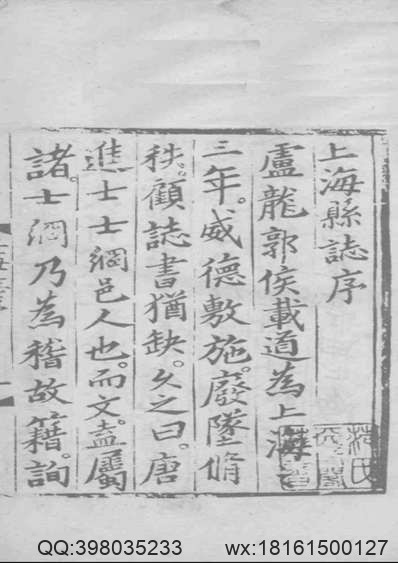 上海縣誌序
盧龍郭侯載道為上海
三年。威德敷施。廢墜脩
秩。顧誌書猶缺。久之曰。唐
進士士綱邑人也。而文。盍屬
諸。士綱乃為稽故籍。詢
QQ:398035233 wx:18161500127